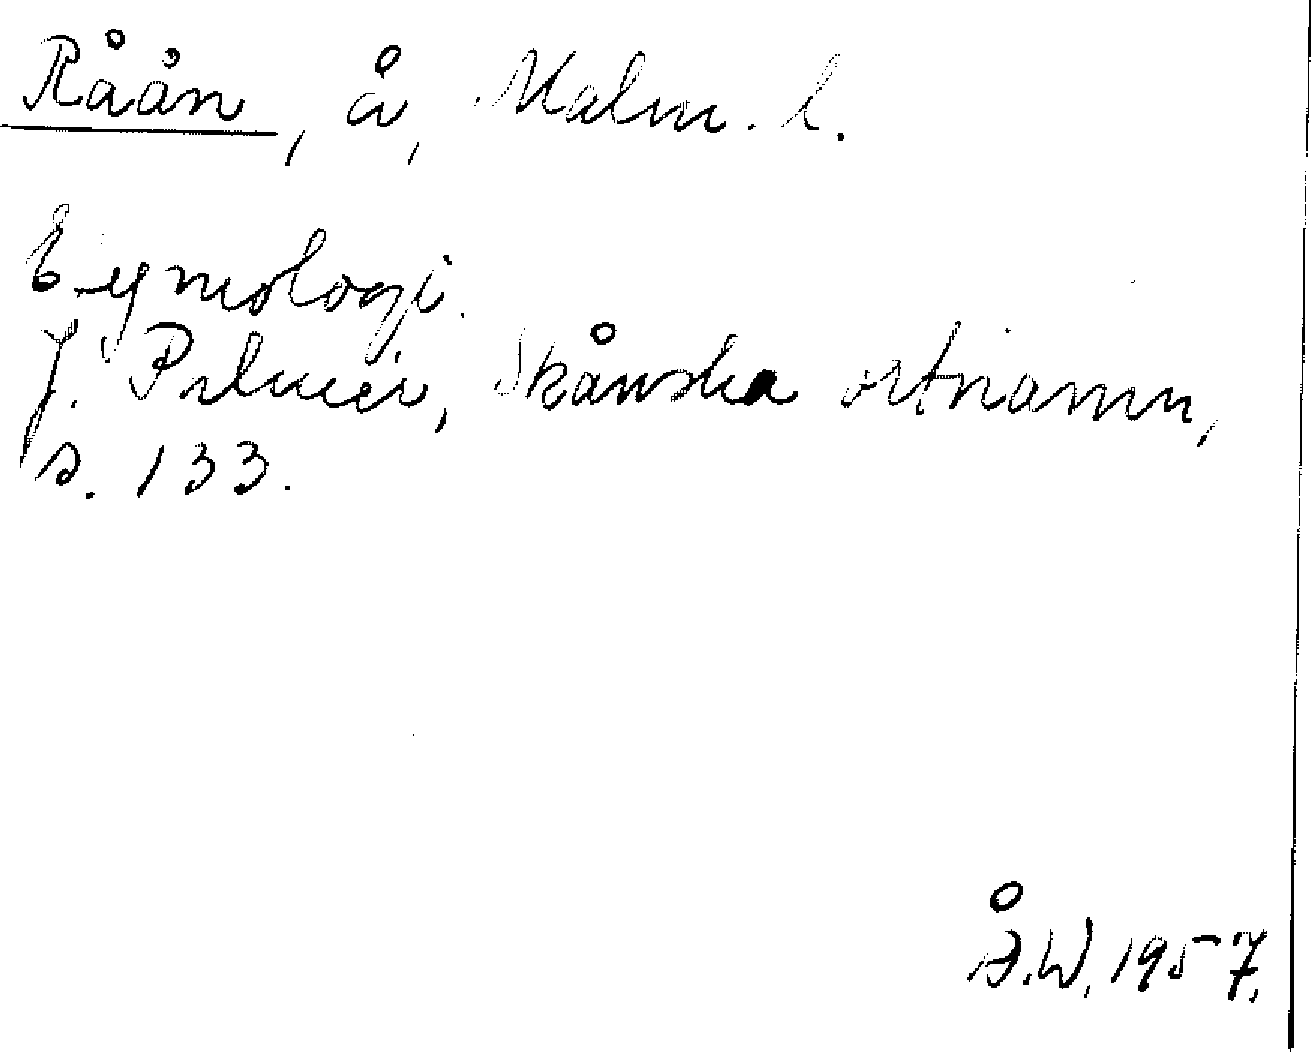 Råån, å, Malm. l.
Eymologi.
J. Palmér, Skånska ortnamn,
s. 133.
Å.W. 1957.